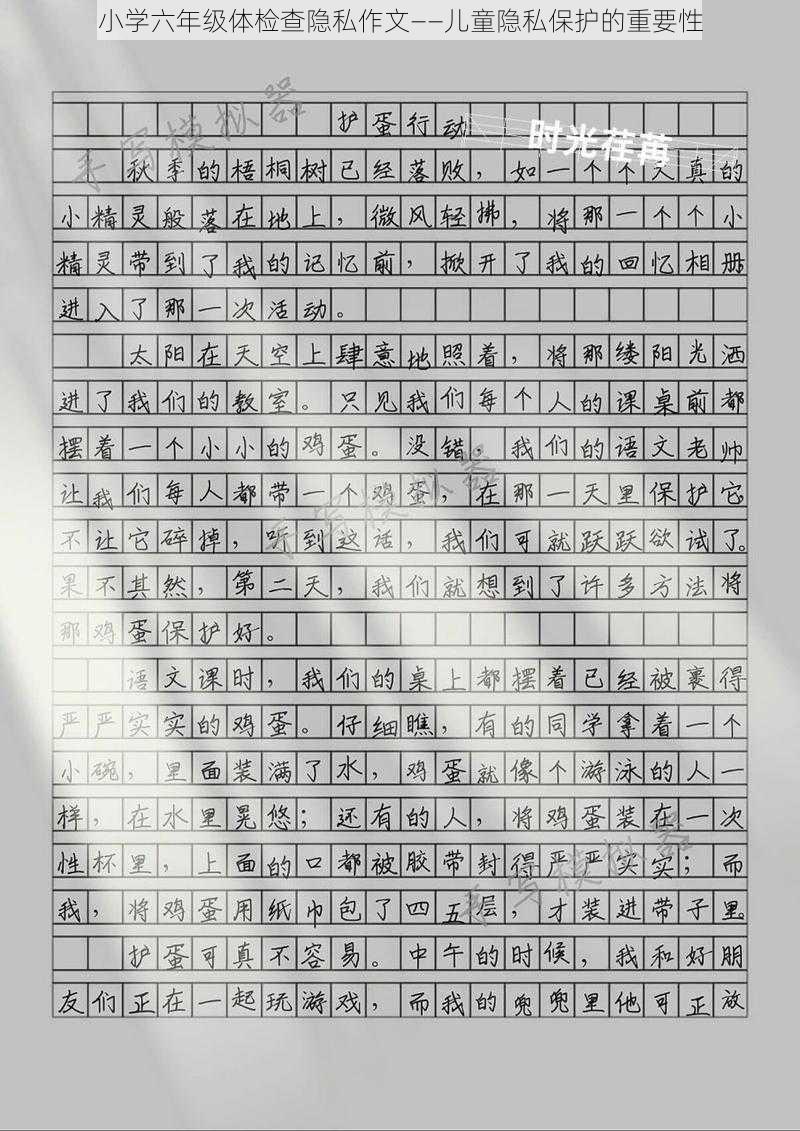 小学六年级体检查隐私作文——儿童隐私保护的重要性
护蛋行动
时光荏苒
手写模拟器
秋季的梧桐树已经落败，如一个个入真的
小精灵般落在地上，微风轻拂，将那一个个小
精灵带到了我的记忆前，掀开了我的回忆相册
进入了那一次活动。
太阳在天空上肆意地照着，将那缕阳光洒
进了我们的教室。只见我们每个人的课桌前都
摆着一个小小的鸡蛋。没错。我们的语文老帅
让我们每人都带一个鸡蛋，在那一天里保护它
手写模拟器
不让它碎掉，听到这话，我们可就跃跃欲试了。
果不其然，第二天，我们就想到了许多方法将
那鸡蛋保护好。
语文课时，我们的桌上都摆着已经被裹得
严严实实的鸡蛋。仔细瞧，有的同学拿着一个
小碗，里面装满了水，鸡蛋就像个游泳的人一
样，在水里晃悠；还有的人，将鸡蛋装在一次
性杯里，上面的口都被胶带封得严严实实；而
手写模拟器
我，将鸡蛋用纸巾包了四五层，才装进带子里。
护蛋可真不容易。中午的时候，我和好朋
友们正在一起玩游戏，而我的兜兜里他可正放